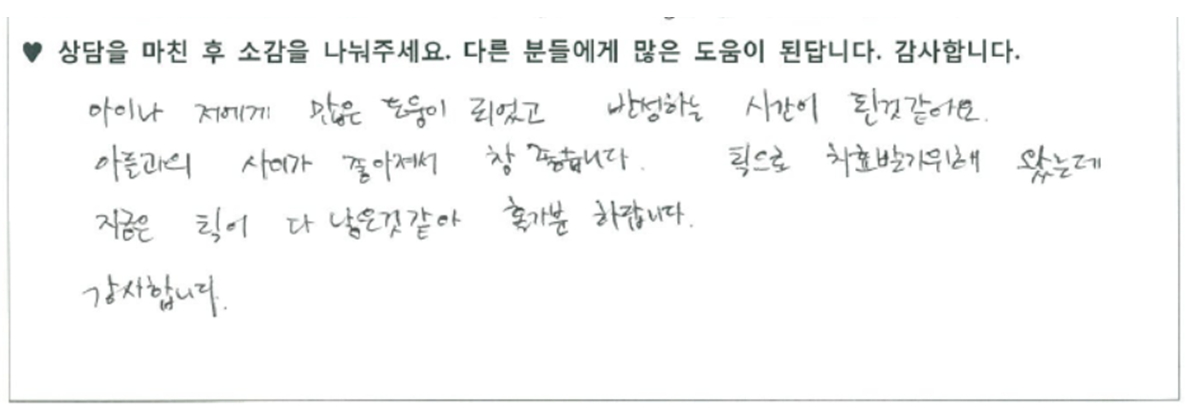 ♥ 상담을 마친 후 소감을 나눠주세요. 다른 분들에게 많은 도움이 된답니다. 감사합니다.
아이나 저에게 많은 도움이 되었고 반성하는 시간이 된것같어요.
아들과의 사이가 좋아져서 참 좋습니다. 틱으로 치료받기위해 왔는데
지금은 틱이 다 낳은것같아 홀가분 하답니다.
감사합니다.